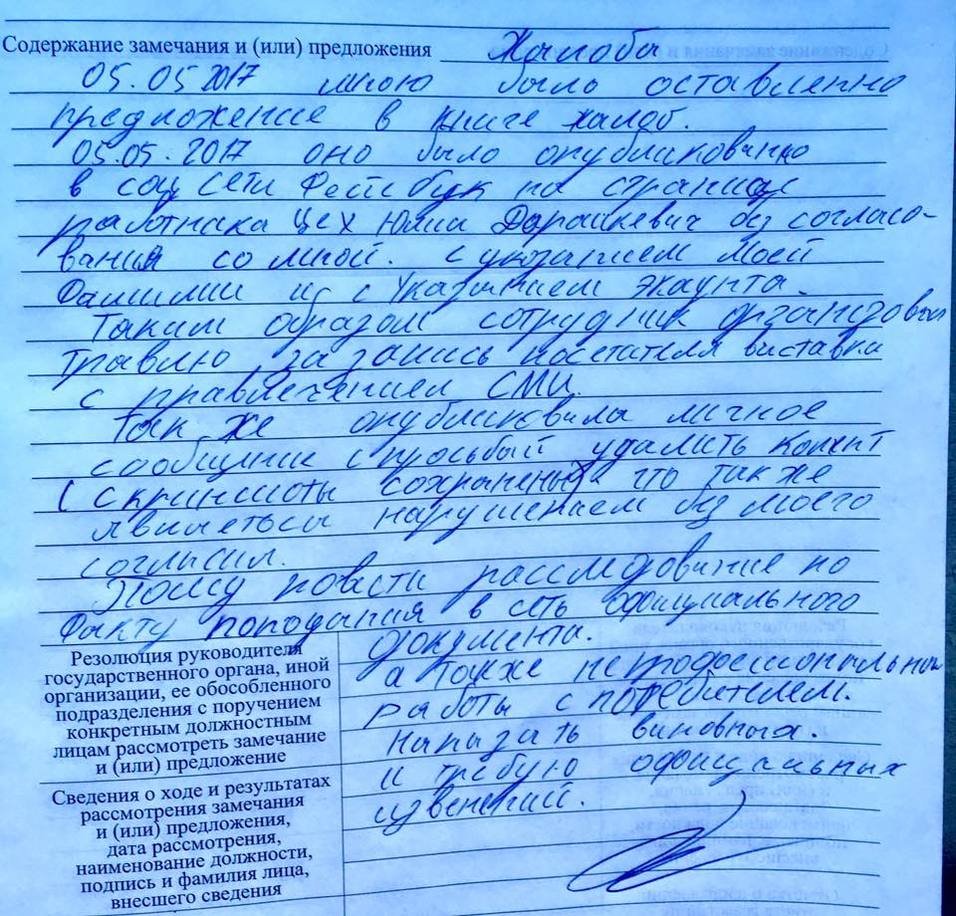 Содержание замечания и (или) предложения Жалоба
05.05.2017 мною было оставленно
предложение в книге жалоб.
05.05.2017 оно было опубликованно
в соц сети Фейсбук на странице
работника ЦЕХ Юлии Дорашкевич без согласо-
вания со мной. с указанием моей
Фамилии и с Указанием экаунта.
Таким образом сотрудник организовал
травлю за запись посетителя выставки
с правлечением СМИ.
Так же опубликовала личное
сообщение с просьбый удалить контент
(скриншоты сохранены) что также
являеться нарушением без моего
согласия.
Прошу повести расследование по
Факту поподания в сеть официального
документа.
а также непрофессиональной
работы с потребителем.
Наказать виновных.
и требую официальных
извенений.
Резолюция руководителя
государственного органа, иной
организации, ее обособленного
подразделения с поручением
конкретным должностным
лицам рассмотреть замечание
и (или) предложение
Сведения о ходе и результатах
рассмотрения замечания
и (или) предложения,
дата рассмотрения,
наименование должности,
подпись и фамилия лица,
внесшего сведения